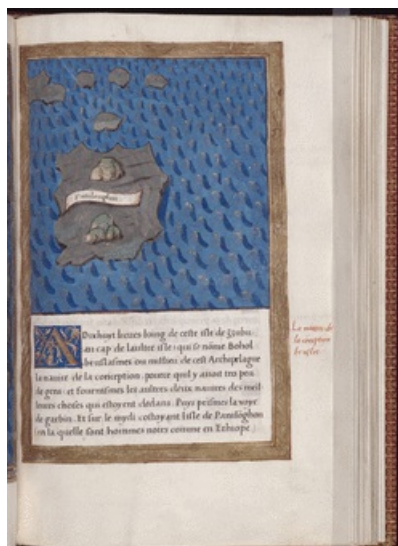 Panilõghon
A Dixhuyt lieues loing de ceste isle de Zzubu
au cap de laultre isle qui se nõme Bohol
bruslasmes ou millieu de cest Archipelague
la nauire de la conception, pource quil y auait tro peu
de gens, et fournismes les aultres deux nauires des meil
leures choses qui estoyent dedans. Puys prismes la voye
de garbin. Et sur le mydi costoyant lisle de Panilõghon
en la quelle sont hommes noirs comme en Ethiope.
La nauire de
la conception
bruslee